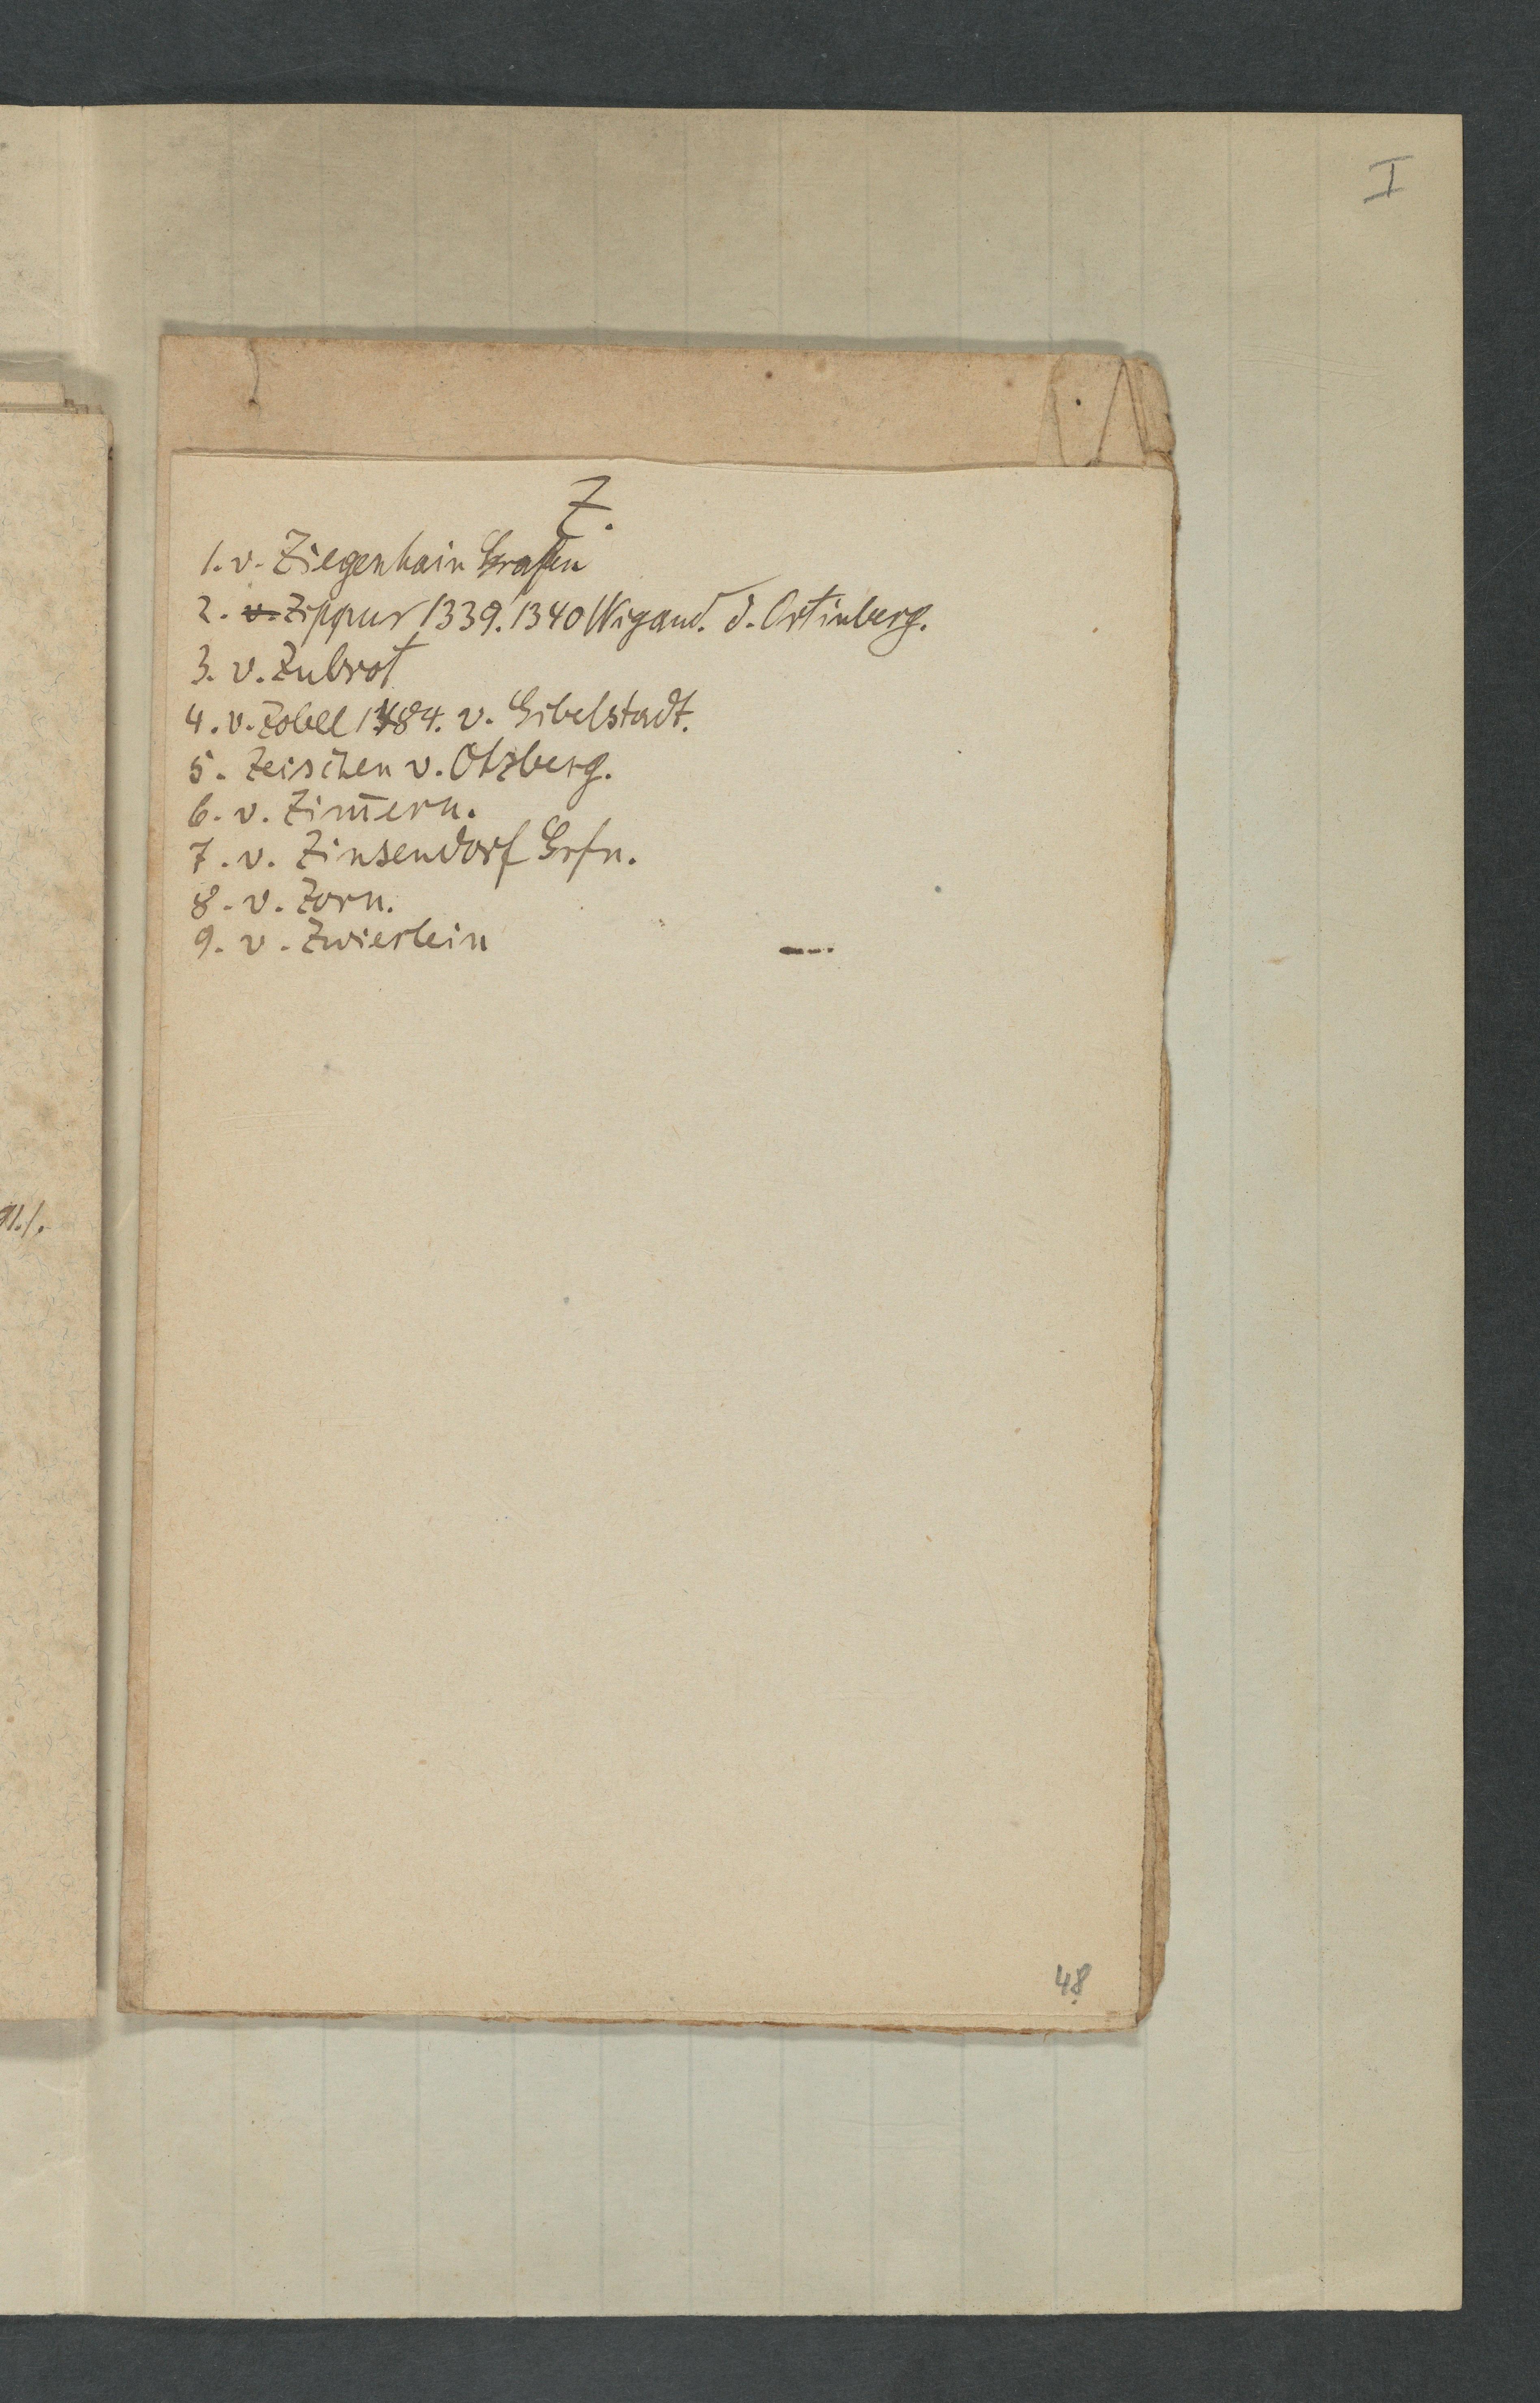 I
Z.
1. v. Ziegenhain Grafen
2. v. Zippur 1339. 1340 Wigand. d. Ortinberg.
3. v. Zubrot
4. v. Zobel 1484. v. Gibelstadt.
5. Zeischen v. Otzberg.
6. v. Zim̄ern.
7. v. Zinsendorf Grfn.
8. v. Zorn.
9. v. Zwierlein
48